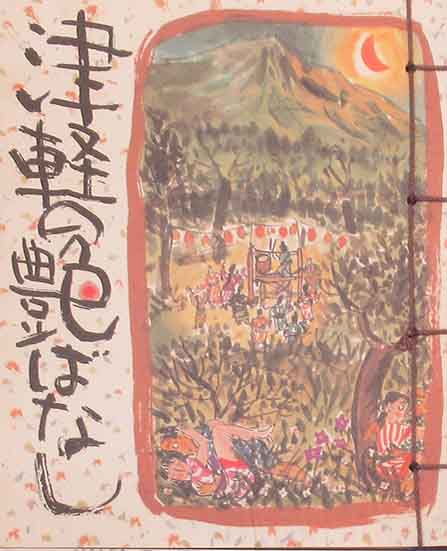 津軽の艶ばなし